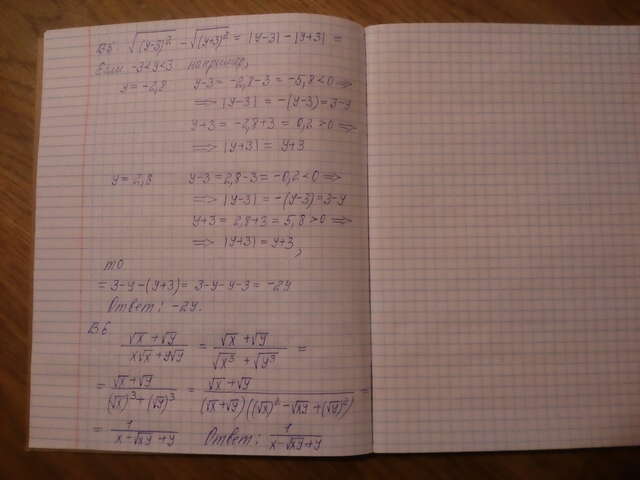 В5. √(y-3)² - √(y+3)² = |y-3| - |y+3| =
Если -3<y<3 например,
y = -2,8 y-3 = -2,8-3 = -5,8<0 ⇒
⇒ |y-3| = -(y-3)=3-y
y+3 = -2,8+3 = 0,2>0 ⇒
⇒ |y+3| = y+3
y=2,8 y-3=2,8-3=-0,2<0 ⇒
⇒ |y-3|=-(y-3)=3-y
y+3 = 2,8+3 = 5,8>0 ⇒
⇒ |y+3|=y+3,
то
= 3-y-(y+3)= 3-y-y-3 = -2y
Ответ: -2y.
В6
(√x + √y)/(x√x + y√y) = (√x + √y)/(√x³ + √y³) =
= (√x + √y)/((√x)³+(√y)³) = (√x + √y)/((√x+√y)((√x)²-√xy+(√y)²)) =
= 1/(x-√xy+y) Ответ: 1/(x-√xy+y)